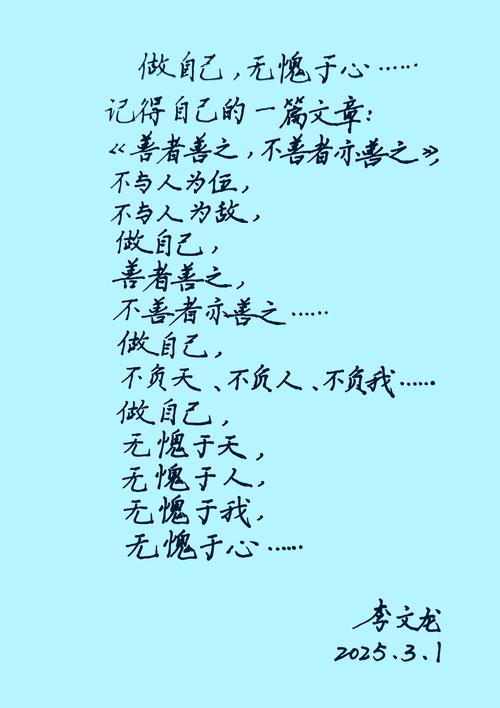 做自己，无愧于心……
记得自己的一篇文章：
《善者善之，不善者亦善之》，
不与人为伍，
不与人为敌，
做自己，
善者善之，
不善者亦善之……
做自己，
不负天、不负人、不负我……
做自己，
无愧于天，
无愧于人，
无愧于我，
无愧于心……
李文龙
2025.3.1